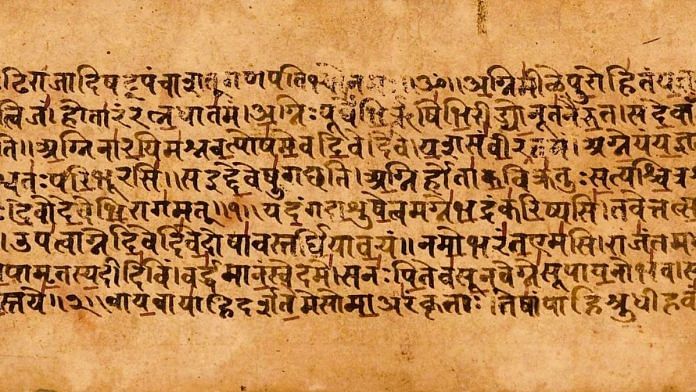 गणपति ॥ॐ॥ अग्निमीळे पुरोहितं
त्विजं । होतारं रत्नधातमं । अग्निः पूर्वेभिर्ऋषिभिरीड्यो नूतनैरुत । स देवाँ
ति ॥ अग्निना रयिमश्नवत्पोषमेव दिवेदिवे । यशसं वीर । अग्ने यं यज्ञ
श्वतः परिभूरसि ॥ स इद्देवेषु गच्छति । अग्निर्होता कविक्रतुः सत्यश्चित्र
। देवो देवेभिरागमत् ॥१॥ यदंग दाशुषे त्वमग्ने भद्रं करिष्यसि । तवेत्तत्स
। उप त्वाग्ने दिवेदिवे दोषावस्तर्धिया वयं ॥ नमो भरंत एमसि । राजंतम
गोपामृतस्य दीदिविं । वर्द्धमानं स्वे दमे । स नः पितेव सूनवेग्ने सूपायनो भव । स
स्तये ॥२॥ वायवा याहि दर्शतेमे सोमा अरंकृताः । तेषां पाहि श्रुधी हवं